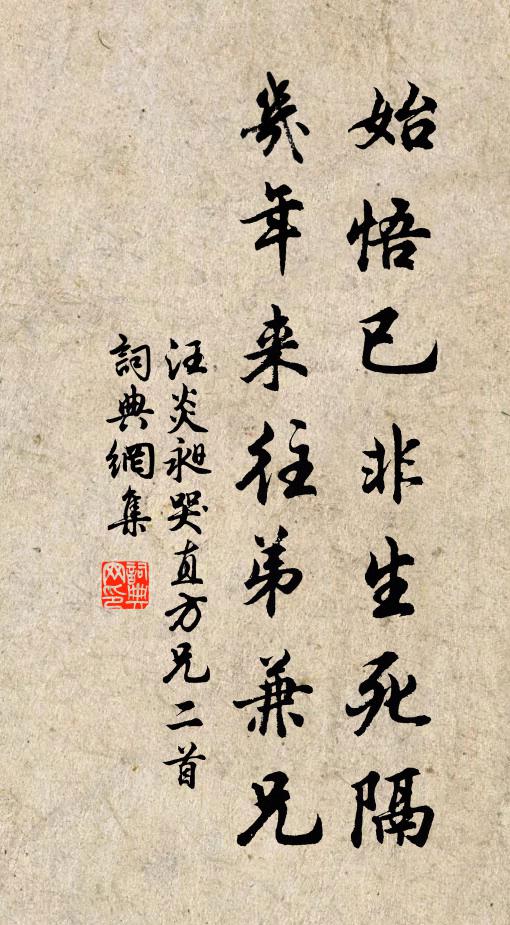 始悟已非生死隔
几年来往弟兼兄
汪炎昶哭直方兄二首
詞典網集
詞典网印